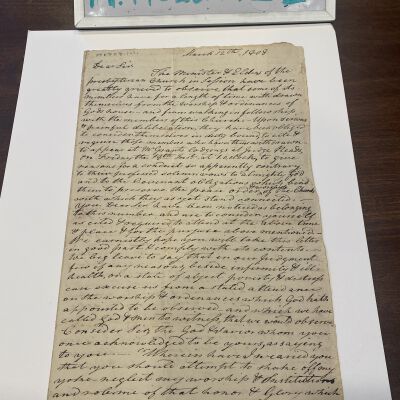 March 12th, 1808
Dear Sir
The Minister & Elders of the
presbyterian Church in Session have been
greatly grieved to observe that some of its
members have for a length of time withdrawn
themselves from the worship & ordinances of
God's house and from walking in fellowship
with the members of this Church. Upon serious
& painful deliberation they have been obliged
to consider themselves in duty bound to call &
require those members who have thus withdrawn
to appear at
on Friday the next at to give
reasons for a conduct so apparently contrary
to their professed to almighty God
and to the Covenant obligations which bind
them to preserve the peace & order of the Church
with which they as yet stand connected.
You Dear Sir have been noticed as belonging
to this number and are to consider yourself
as cited & required to attend at the above time
& place & for the purpose above mentioned
We earnestly hope you will take this letter
in good part & comply with its contents.
We beg leave to say that in our Judgment
few if any reasons beside infirmity & ill
health or a state of abject poverty & distress
can excuse us from a stated attendance
on the worship & ordinances which God hath
appointed to be observed and which we have
called God & men to witness that we would observe
Consider Sir the God & Savior whom you
once acknowledged to be yours, as saying
to you "Wherein have I wearied you
that you should attempt to shake off my
yoke neglect my worship & Institutions
and rob me of that honor & Glory which